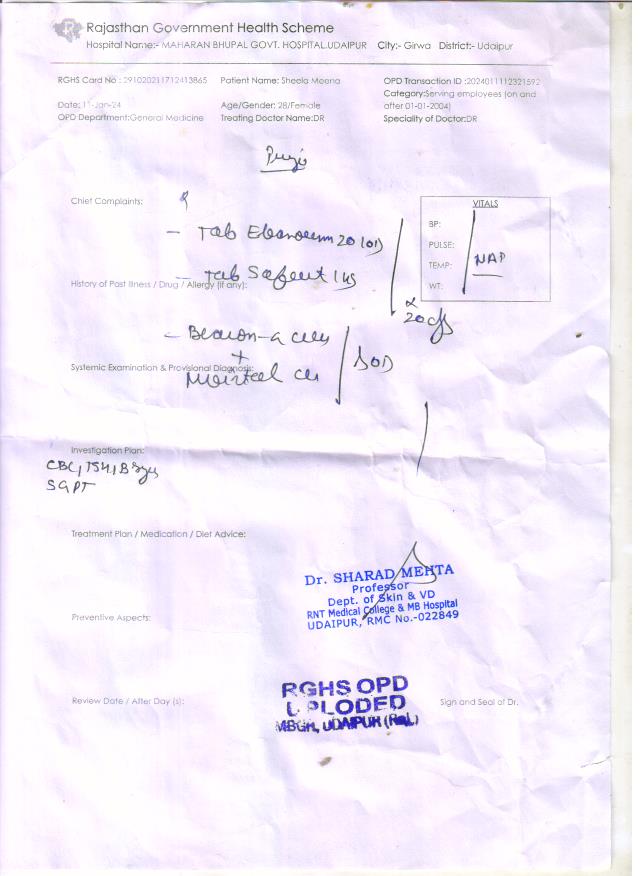 Rajasthan Government Health Scheme
Hospital Name:- MAHARAN BHUPAL GOVT. HOSPITAL,UDAIPUR City:- Girwa District:- Udaipur
RGHS Card No : 291020211712413865 Patient Name: Sheela Meena OPD Transaction ID :2024011112321592
Category:Serving employees (on and after 01-01-2004)
Date: 11-Jan-24 Age/Gender: 28/Female
OPD Department:General Medicine Treating Doctor Name:DR Speciality of Doctor:DR
Chief Complaints:
VITALS
BP:
PULSE:
TEMP:
WT:
NAD
- Tab 20 OD
- Tab
History of Past Illness / Drug / Allergy (if any):
x
20 days
+
Systemic Examination & Provisional Diagnosis:
Investigation Plan:
CBC, TSH, B
SGPT
Treatment Plan / Medication / Diet Advice:
Dr. SHARAD MEHTA
Professor
Dept. of Skin & VD
RNT Medical College & MB Hospital
UDAIPUR, RMC No.-022849
Preventive Aspects:
RGHS OPD
UPLODED
MBGH, UDAIPUR (Raj.)
Review Date / After Day (s): Sign and Seal of Dr.